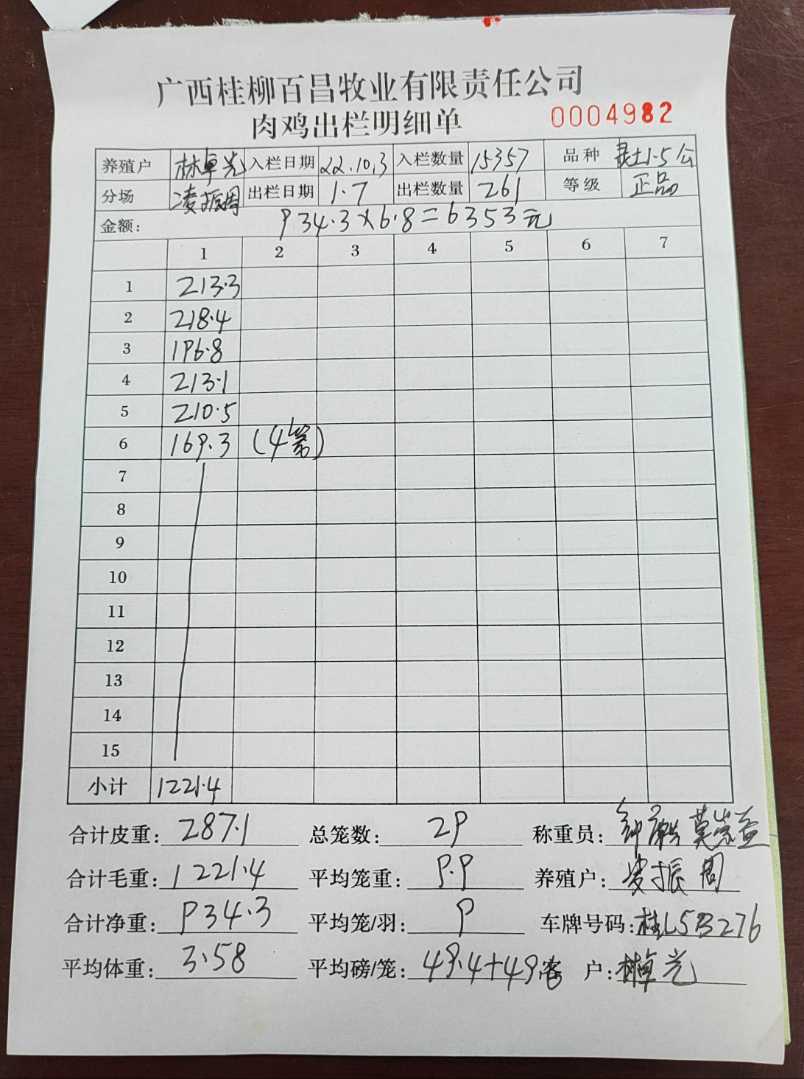 广西桂柳百昌牧业有限责任公司
肉鸡出栏明细单 0004982
养殖户 林卓光 入栏日期 22.10.3 入栏数量 15357 品种 土1.5公
分场 凌振周 出栏日期 1.7 出栏数量 261 等级 正品
金额: 934.3×6.8=6353元
1 2 3 4 5 6 7
1 213.3
2 218.4
3 196.8
4 213.1
5 210.5
6 169.3 (4笼)
7
8
9
10
11
12
13
14
15
小计 1221.4
合计皮重: 287.1 总笼数: 29 称重员:
合计毛重: 1221.4 平均笼重: 9.9 养殖户: 凌振周
合计净重: 934.3 平均笼/羽: 9 车牌号码: 桂L53276
平均体重: 3.58 平均磅/笼: 49.4+49 客户: 林卓光